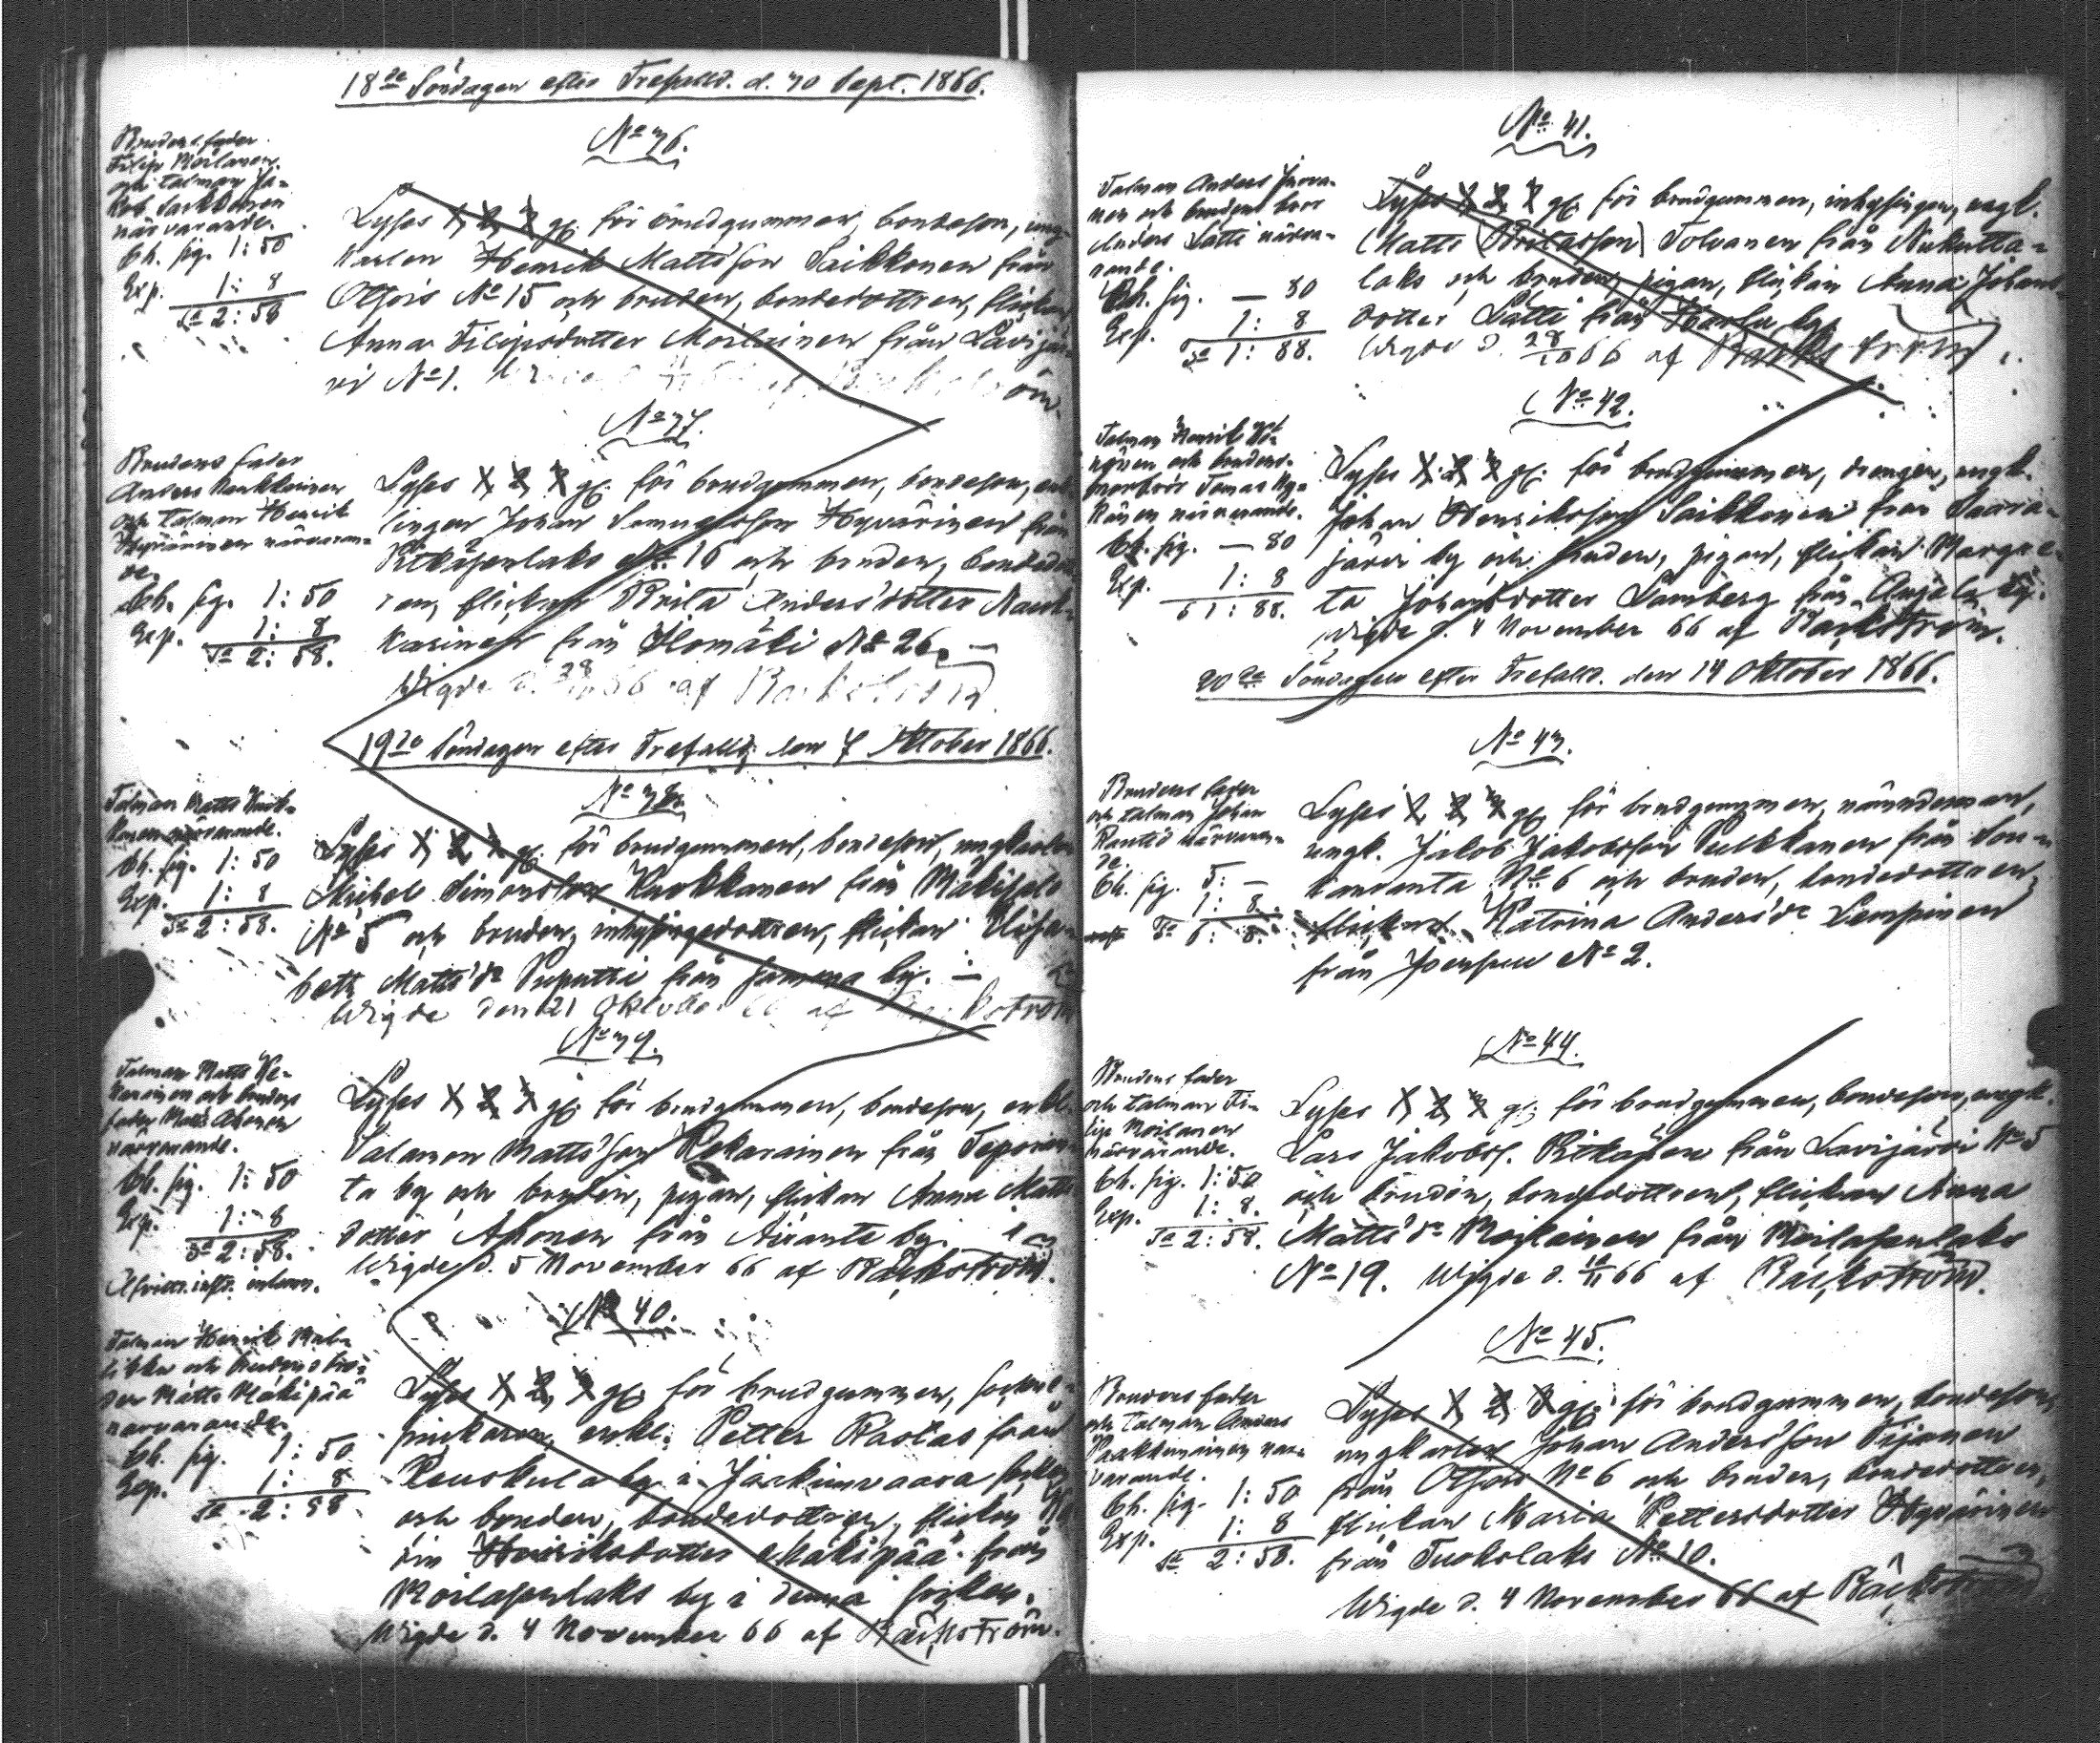 18de Söndagen efter Trefalld. d. 30 Sept. 1866.
No 36.
Brudens fader
Filip Moilanen
och talman Ja-
kob Saikkonen
närvarande.
Ch. sig. 1:50
Exp. 1: 8
Sa 2:58
Lyses 1, 2, 3 gg. för brudgummen, bondeson, ung-
karlen Henrik Mattsson Saikkonen från
Otsois No 15 och bruden, bondedottren, flickan
Anna Filipsdotter Moilainen från Lavijär-
vi No 1.
No 37.
Brudens fader
Anders Naukkarinen
och talman Henrik
Hyvärinen närvaran-
de.
Ch. sig. 1:50
Exp. 1: 8
Sa 2:58.
Lyses 1, 2, 3 gg. för brudgummen, bondeson, enk-
lingen Johan Samuelsson Hyvärinen från
Pitkäpenlaks No 16 och bruden, bondedott-
ren, flickan Brita Andersdotter Nauk-
karinen från Ilomäki No 26.
Wigde d. 66 af Bäckström
19de Söndagen efter Trefalld. den 7 Oktober 1866.
No 38.
Talman Matts Kuok-
kanen närvarande.
Ch. sig. 1:50
Exp. 1: 8
Sa 2:58.
Lyses 1, 2, 3 gg. för brudgummen, bondeson, ungkarlen
Michel Simonsson Kuokkanen från Mäkisalo
No 5 och bruden, inhysingedottren, flickan Elisa-
beth Matts dr Puputti från samma by.
Wigde den 21 Oktober 66 af Bäckström
No 39.
Talman Matts Ke-
karainen och brudens
fader Matts Ahonen
närvarande.
Ch. sig. 1:50
Exp. 1: 8
Sa 2:58.
Lyses 1, 2, 3 gg. för brudgummen, bondeson, enkl.
Salamon Mattsson Kekarainen från Teporan-
ta by och bruden, pigan, flickan Anna Matts
dotter Ahonen från Airanta by.
Wigde d. 5 November 66 af Bäckström.
No 40.
Talman Henrik
och brudens bro-
der Matts Mäkipää
närvarande.
Ch. sig. 1:50
Exp. 1: 8
Sa 2:58
Lyses 1, 2, 3 gg. för brudgummen, socken-
enkl. Petter Räsläs från
by i Jaakimvaara socken
och bruden, bondedottren, flickan
Henriksdotter Mäkipää från
Moilasenlaks by i denna socken.
Wigde d. 4 November 66 af Bäckström.
No 41.
Talman Anders Jurva-
nen och brudens bror
Anders Lätti närva-
rande.
Ch. sig. — 80
Exp. 1: 8
Sa 1:88.
Lyses 1, 2, 3 gg. för brudgummen, inhysingen, ungk.
Matts (Britasson) Tolvanen från Nukutta-
laks och bruden, pigan, flickan Anna Johans-
dotter Lätti från by
Wigde d. 28/10 66 af Bäckström.
No 42.
Talman Henrik
och brudens
morbror Tomas Hy-
närvarande.
Ch. sig. — 80
Exp. 1: 8
S 1:88.
Lyses 1, 2, 3 gg. för brudgummen, drengen, ungk.
Johan Henriksson Saikkonen från Saara-
järvi by och bruden, pigan, flickan Margare-
ta Johansdotter Lamberg från Anjala by.
Wigde d. 4 November 66 af Bäckström.
20de Söndagen efter Trefalld. den 14 Oktober 1866.
No 43.
Brudens fader
och talman Johan
Rantio närvaran-
de.
Ch. sig. 5: —
1: 8.
Sa 6: 8.
Lyses 1, 2, 3 gg. för brudgummen, nämndeman,
ungk. Jakob Jakobsson Pulkkanen från Son-
kanranta No 6 och bruden, bondedottren,
flickan Katrina Anders dr Lempinen
från Joensuu No 2.
No 44.
Brudens fader
och talman Fi-
lip Moilanen
närvarande.
Ch. sig. 1:50
Exp. 1: 8.
Sa 2:58.
Lyses 1, 2, 3 gg. för brudgummen, bondeson, ungk.
Lars Jakobs. Pitkänen från Lavijärvi No 5
och bruden, bondedottren, flickan Anna
Matts dr Moilainen från Moilasenlaks
No 19. Wigde d. 66 af Bäckström.
No 45.
Brudens fader
och talman Anders
närvarande.
Ch. sig. 1:50
Exp. 1: 8
Sa 2:58.
Lyses 1, 2, 3 gg. för brudgummen, bondeson,
ungkarlen Johan Andersson Tijanen
från Otsois No 6 och bruden, bondedottren,
flickan Maria Pettersdotter Hyvärinen
från Tuokslaks No 10.
Wigde d. 4 November 66 af Bäckström